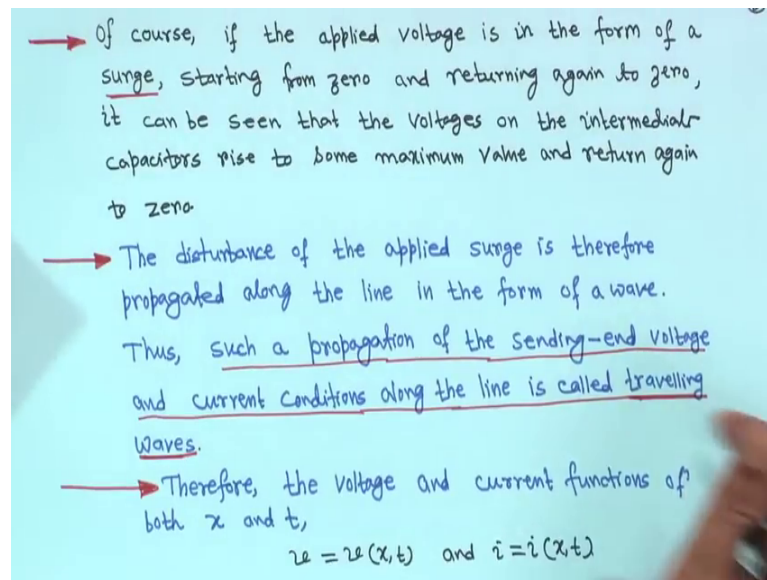 → Of course, if the applied voltage is in the form of a
surge, starting from zero and returning again to zero,
it can be seen that the voltages on the intermediate
capacitors rise to some maximum value and return again
to zero
→ The disturbance of the applied surge is therefore
propagated along the line in the form of a wave.
Thus, such a propagation of the sending-end voltage
and current conditions along the line is called travelling
waves.
→ Therefore, the voltage and current functions of
both x and t,
v = v(x,t) and i = i(x,t)